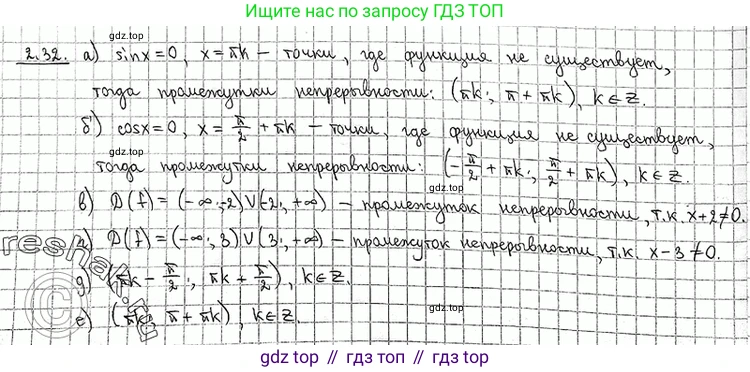 Ищите нас по запросу ГДЗ ТОП
gdz.top
2.32. а) sinx=0, x=πk – точки, где функция не существует,
тогда промежутки непрерывности: (πk; π+πk), k∈Z.
gdz.top
б) cosx=0, x=π/2+πk – точки, где функция не существует,
тогда промежутки непрерывности: (-π/2+πk; π/2+πk), k∈Z.
gdz.top
в) D(f)=(-∞;-2)∪(-2;+∞) – промежуток непрерывности, т.к. x+2≠0.
г) D(f)=(-∞;3)∪(3;+∞) – промежуток непрерывности, т.к. x-3≠0.
reshak.ru
д) (πk-π/2; πk+π/2), k∈Z.
е) (πk; π+πk), k∈Z.
gdz.top
gdz top // гдз топ // gdz.top